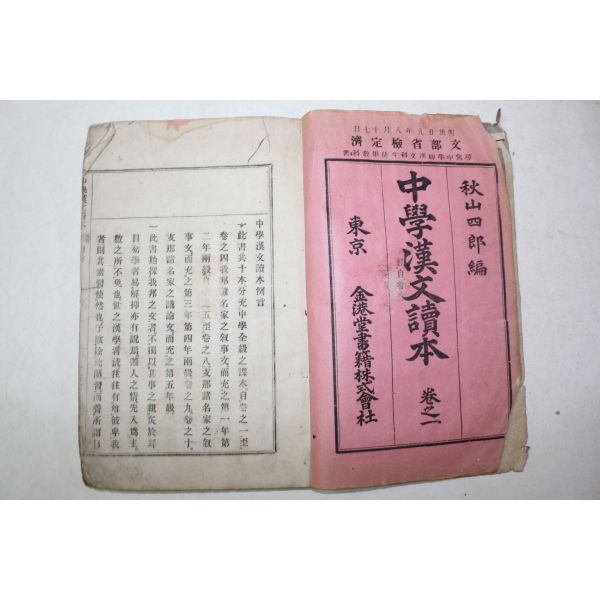 明治廿九年八月十七日
文部省檢定濟
尋常中學校漢文科生徒用教科書
秋山四郎編
中學漢文讀本
卷之一
東京
金港堂書籍株式會社
中學漢文讀本例言
一此書共十本分充中學全級之課本自卷之一至
卷之四我邦諸名家之叙事文而充之第一年第
二年兩級自卷之五至卷之八支那諸名家之叙
事文而充之第三年第四年兩級卷之九卷之十
支那諸名家之議論文而充之第五年級
一此書始採我邦之文者不獨以其事之親炙於耳
目初學者易解抑亦有説焉蓋人之情先入爲主
數之所不免也世之漢學者流往往有尊彼卑我
者則其素習使然也予欲除此